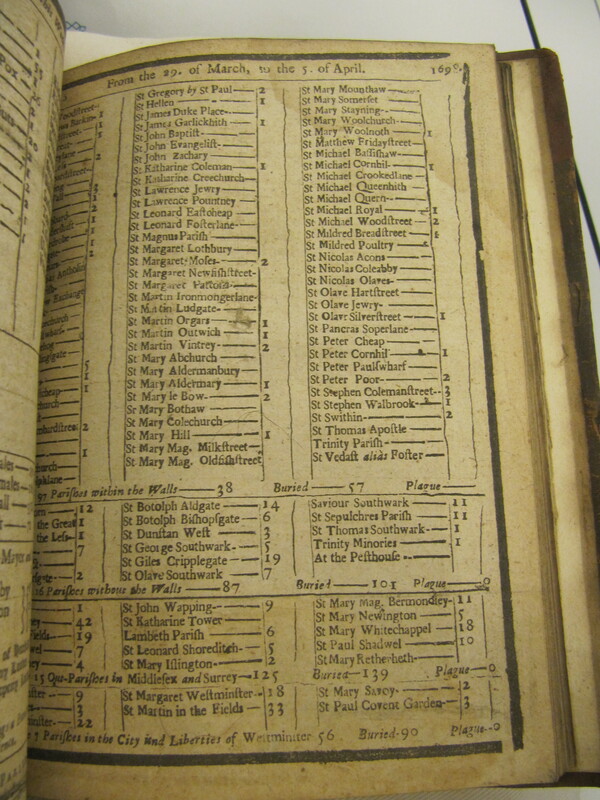 From the 29. of March, to the 5. of April. 1698.
St Gregory by St Paul 2
St Hellen 1
St James Duke Place
St James Garlickhith 1
St John Baptist
St John Evangelist
St John Zachary
St Katharine Coleman 1
St Katharine Creechurch
St Lawrence Jewry
St Lawrence Pountney
St Leonard Eastcheap
St Leonard Fosterlane
St Magnus Parish
St Margaret Lothbury
St Margaret Moses 2
St Margaret Newfishstreet
St Margaret Pattons
St Martin Ironmongerlane
St Martin Ludgate
St Martin Orgars 1
St Martin Outwich 1
St Martin Vintrey 2
St Mary Abchurch
St Mary Aldermanbury
St Mary Aldermary 1
St Mary le Bow 2
St Mary Bothaw
St Mary Colechurch
St Mary Hill 1
St Mary Mag. Milkstreet
St Mary Mag. Oldfishstreet
St Mary Mounthaw
St Mary Somerset
St Mary Stayning
St Mary Woolchurch
St Mary Woolnoth 1
St Matthew Fridaystreet
St Michael Bassishaw
St Michael Cornhil 1
St Michael Crookedlane
St Michael Queenhith
St Michael Quern
St Michael Royal 1
St Michael Woodstreet 2
St Mildred Breadstreet 1
St Mildred Poultry
St Nicolas Acons
St Nicolas Coleabby
St Nicolas Olaves
St Olave Hartstreet
St Olave Jewry
St Olave Silverstreet 1
St Pancras Soperlane
St Peter Cheap
St Peter Cornhil 1
St Peter Paulswharf
St Peter Poor 2
St Stephen Colemanstreet 3
St Stephen Walbrook 1
St Swithin 2
St Thomas Apostle
Trinity Parish
St Vedast alias Foster
97 Parishes within the Walls 38 Buried 57 Plague
12
the Great 1
the Less 1
7
2
St Botolph Aldgate 14
St Botolph Bishopsgate 6
St Dunstan West 3
St George Southwark 5
St Giles Cripplegate 19
St Olave Southwark 7
Saviour Southwark 11
St Sepulchres Parish 11
St Thomas Southwark 1
Trinity Minories 1
At the Pesthouse
16 Parishes without the Walls 87 Buried 101 Plague 0
1
42
19
7
4
St John Wapping 9
St Katharine Tower
Lambeth Parish 6
St Leonard Shoreditch 5
St Mary Islington 2
St Mary Mag. Bermondsey 11
St Mary Newington 5
St Mary Whitechappel 18
St Paul Shadwel 10
St Mary Retherheth
15 Out-Parishes in Middlesex and Surrey 125 Buried 139 Plague 0
9
3
22
St Margaret Westminster 18
St Martin in the Fields 33
St Mary Savoy 2
St Paul Covent Garden 3
7 Parishes in the City and Liberties of Westminster 56 Buried 90 Plague 0